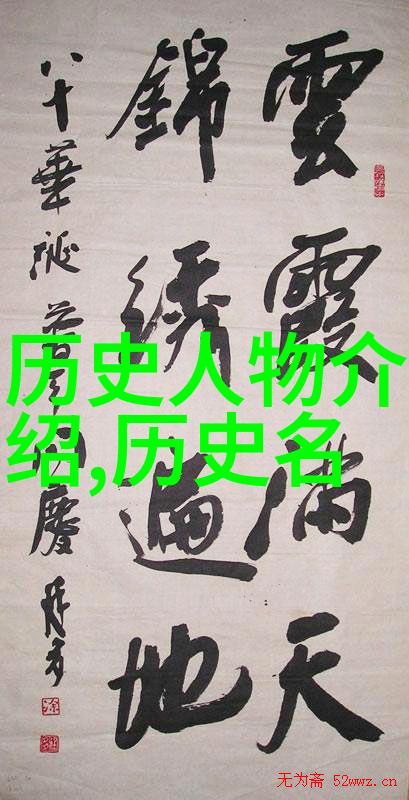 雲霞滿天
錦綉遍地
八十華誕 慶
历史人物介
绍,历史名
无为斋 52wwz.cn